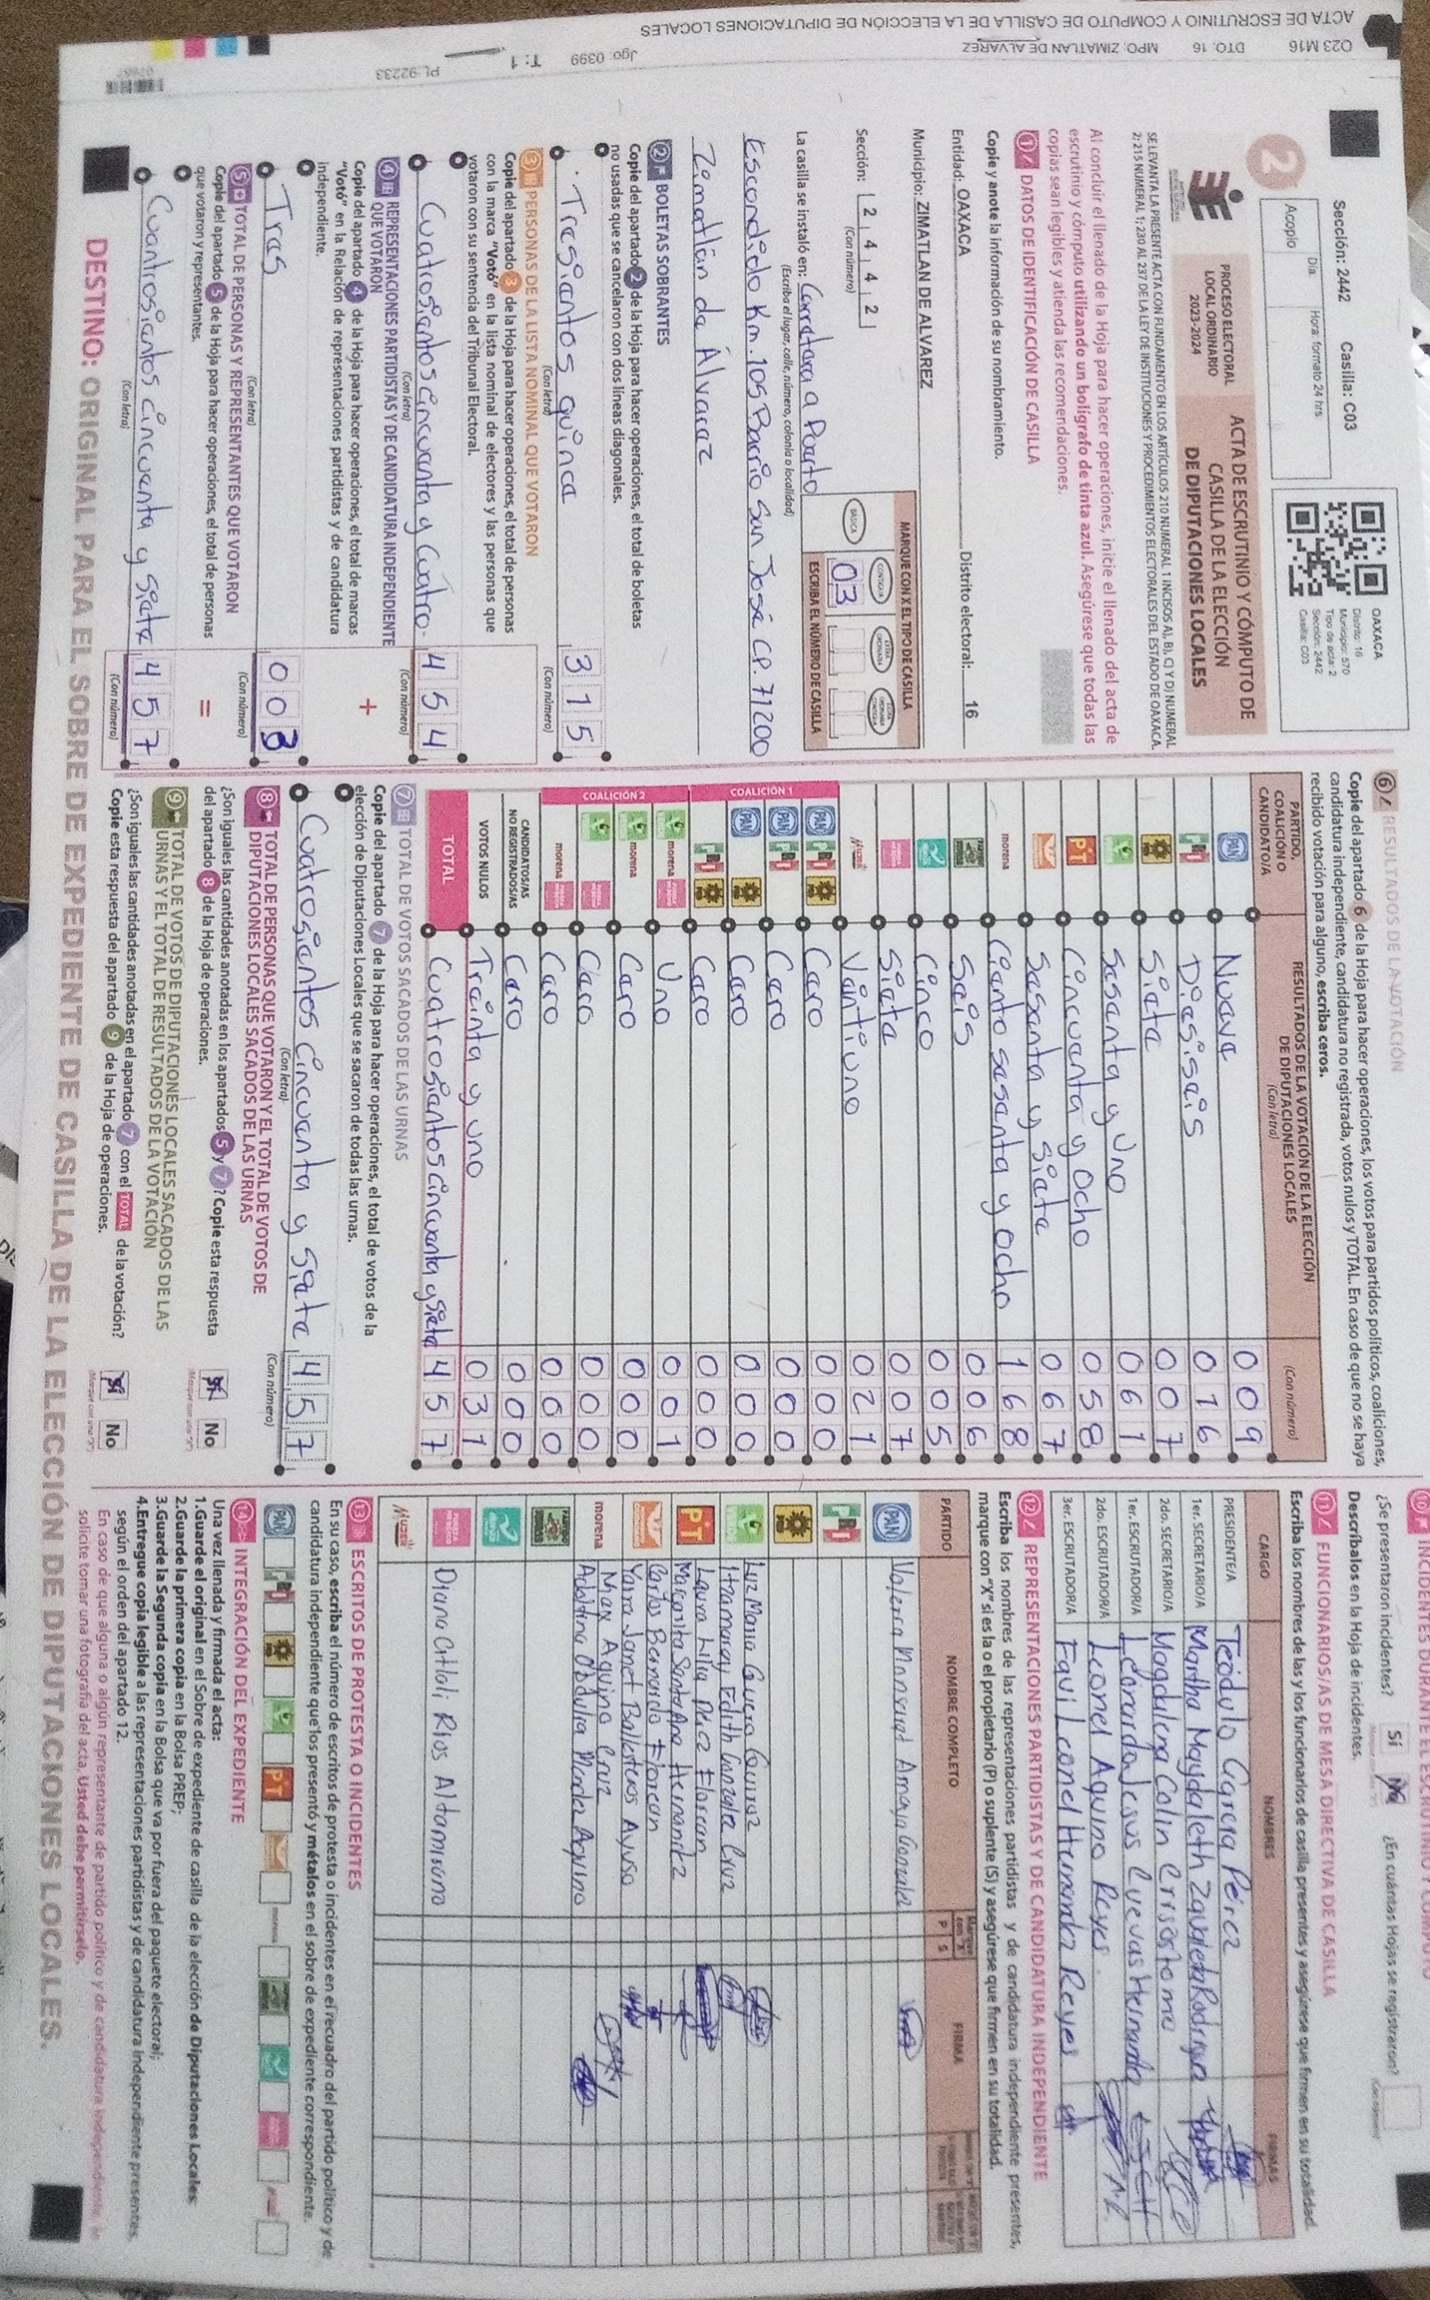 Q23 M16 DTO. 16 MPO. ZIMATLAN DE ALVAREZ Jgo: 0399 T: 1 PL 92233
ACTA DE ESCRUTINIO Y COMPUTO DE CASILLA DE LA ELECCIÓN DE DIPUTACIONES LOCALES
Sección: 2442 Casilla: C03
Día: Hora: formato 24 hrs
Acopio
2
OAXACA
Distrito: 16
Municipio: 570
Tipo de acta: 2
Sección: 2442
Casilla: C03
PROCESO ELECTORAL
LOCAL ORDINARIO
2023-2024
ACTA DE ESCRUTINIO Y CÓMPUTO DE
CASILLA DE LA ELECCIÓN
DE DIPUTACIONES LOCALES
SE LEVANTA LA PRESENTE ACTA CON FUNDAMENTO EN LOS ARTÍCULOS 210 NUMERAL 1 INCISOS A), B), C) Y D) NUMERAL
2; 215 NUMERAL 1; 230 AL 237 DE LA LEY DE INSTITUCIONES Y PROCEDIMIENTOS ELECTORALES DEL ESTADO DE OAXACA.
Al concluir el llenado de la Hoja para hacer operaciones, inicie el llenado del acta de
escrutinio y cómputo utilizando un bolígrafo de tinta azul. Asegúrese que todas las
copias sean legibles y atienda las recomendaciones.
1 DATOS DE IDENTIFICACIÓN DE CASILLA
Copie y anote la información de su nombramiento.
Entidad: OAXACA Distrito electoral: 16
Municipio: ZIMATLAN DE ALVAREZ
Sección: 2 4 4 2
(Con número)
MARQUE CON X EL TIPO DE CASILLA
BÁSICA CONTIGUA
ESCRIBA EL NÚMERO DE CASILLA
03
La casilla se instaló en: Carretera a Puerto
(Escriba el lugar, calle, número, colonia o localidad)
Escondido Km. 105 Barrio San José CP. 71200
Zimatlán de Álvarez
2 BOLETAS SOBRANTES
Copie del apartado 2 de la Hoja para hacer operaciones, el total de boletas
no usadas que se cancelaron con dos líneas diagonales.
Tresientos quince 3 1 5
(Con letra) (Con número)
3 PERSONAS DE LA LISTA NOMINAL QUE VOTARON
Copie del apartado 3 de la Hoja para hacer operaciones, el total de personas
con la marca "Votó" en la lista nominal de electores y las personas que
votaron con su sentencia del Tribunal Electoral.
Cuatrosientos cincuenta y cuatro 4 5 4
(Con letra) (Con número)
4 REPRESENTACIONES PARTIDISTAS Y DE CANDIDATURA INDEPENDIENTE
QUE VOTARON
Copie del apartado 4 de la Hoja para hacer operaciones, el total de marcas
"Votó" en la Relación de representaciones partidistas y de candidatura
independiente.
+
Tres 0 0 3
(Con letra) (Con número)
5 TOTAL DE PERSONAS Y REPRESENTANTES QUE VOTARON
Copie del apartado 5 de la Hoja para hacer operaciones, el total de personas
que votaron y representantes.
=
Cuantrosientos cincuenta y siete 4 5 7
(Con letra) (Con número)
6 RESULTADOS DE LA VOTACIÓN
Copie del apartado 6 de la Hoja para hacer operaciones, los votos para partidos políticos, coaliciones,
candidatura independiente, candidatura no registrada, votos nulos y TOTAL. En caso de que no se haya
recibido votación para alguno, escriba ceros.
PARTIDO, COALICIÓN O CANDIDATO/A
RESULTADOS DE LA VOTACIÓN DE LA ELECCIÓN DE DIPUTACIONES LOCALES
(Con letra) (Con número)
PAN Nueve 0 0 9
PRI Diesiseis 0 1 6
PRD Siete 0 0 7
Sesenta y Uno 0 6 1
PT Cincuenta y Ocho 0 5 8
Sesenta y Siete 0 6 7
morena Ciento sesenta y ocho 1 6 8
Seis 0 0 6
Cinco 0 0 5
Siete 0 0 7
Mujer Vaintiuno 0 2 1
COALICIÓN 1
PAN PRI PRD Cero 0 0 0
PAN PRI Cero 0 0 0
PAN PRD Cero 0 0 0
PRI PRD Cero 0 0 0
COALICIÓN 2
morena Uno 0 0 1
morena Cero 0 0 0
Cero 0 0 0
morena Cero 0 0 0
CANDIDATOS/AS NO REGISTRADOS/AS Cero 0 0 0
VOTOS NULOS Treinta y uno 0 3 1
TOTAL Cuatrosientos cincuenta y siete 4 5 7
7 TOTAL DE VOTOS SACADOS DE LAS URNAS
Copie del apartado 7 de la Hoja para hacer operaciones, el total de votos de la
elección de Diputaciones Locales que se sacaron de todas las urnas.
Cuatrosientos cincuenta y siete 4 5 7
(Con letra) (Con número)
8 TOTAL DE PERSONAS QUE VOTARON Y EL TOTAL DE VOTOS DE
DIPUTACIONES LOCALES SACADOS DE LAS URNAS
¿Son iguales las cantidades anotadas en los apartados 5 y 7? Copie esta respuesta
del apartado 8 de la Hoja de operaciones.
Sí No
9 TOTAL DE VOTOS DE DIPUTACIONES LOCALES SACADOS DE LAS
URNAS Y EL TOTAL DE RESULTADOS DE LA VOTACIÓN
¿Son iguales las cantidades anotadas en el apartado 7 con el TOTAL de la votación?
Copie esta respuesta del apartado 9 de la Hoja de operaciones.
Sí No
10 INCIDENTES DURANTE EL ESCRUTINIO Y CÓMPUTO
¿Se presentaron incidentes? Sí No ¿En cuántas Hojas se registraron?
Descríbalos en la Hoja de incidentes.
11 FUNCIONARIOS/AS DE MESA DIRECTIVA DE CASILLA
Escriba los nombres de las y los funcionarios de casilla presentes y asegúrese que firmen en su totalidad.
CARGO NOMBRES FIRMAS
PRESIDENTE/A Teódulo García Pérez
1er. SECRETARIO/A Martha Magdaleth
2do. SECRETARIO/A Magdalena Colin Crisostomo
1er. ESCRUTADOR/A Leonardo Jesus Cuevas Hernandez
2do. ESCRUTADOR/A Leonel Aquino Reyes
3er. ESCRUTADOR/A Favi Leonel Hernandez Reyes
12 REPRESENTACIONES PARTIDISTAS Y DE CANDIDATURA INDEPENDIENTE
Escriba los nombres de las representaciones partidistas y de candidatura independiente presentes,
marque con "X" si es la o el propietario (P) o suplente (S) y asegúrese que firmen en su totalidad.
PARTIDO NOMBRE COMPLETO P S FIRMA
PAN Valeria Monserrat
PRI
PRD
Luz Maria
Itzamaray Edith Gonzalez Cruz
PT Laura Lilia Diaz Florean
Margarita Santa Ana Hernandez
Carlos Bernardo Florean
Yanra Janet Ballesteros Ayuso
morena Max Aquino Cruz
Adelfina Obdulia Aquino
Diana Citlali Rios Altamirano
Mujer
13 ESCRITOS DE PROTESTA O INCIDENTES
En su caso, escriba el número de escritos de protesta o incidentes en el recuadro del partido político y de
candidatura independiente que los presentó y métalos en el sobre de expediente de casilla correspondiente.
14 INTEGRACIÓN DEL EXPEDIENTE
Una vez llenada y firmada el acta:
1.Guarde el original en el Sobre de expediente de casilla de la elección de Diputaciones Locales;
2.Guarde la primera copia en la Bolsa PREP;
3.Guarde la Segunda copia en la Bolsa que va por fuera del paquete electoral;
4.Entregue copia legible a las representaciones partidistas y de candidatura independiente presentes,
según el orden del apartado 12.
En caso de que alguna o algún representante de partido político y de candidatura independiente, le
solicite tomar una fotografía del acta, Usted debe permitírselo.
DESTINO: ORIGINAL PARA EL SOBRE DE EXPEDIENTE DE CASILLA DE LA ELECCIÓN DE DIPUTACIONES LOCALES.